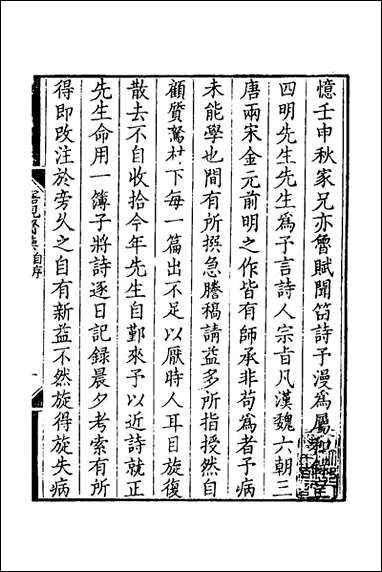 憶壬申秋家兄亦魯賦聞笛詩予漫為屬和
四明先生先生為予言詩人宗旨凡漢魏六朝三
唐兩宋金元前明之作皆有師承非苟為者予病
未能學也間有所撰急謄稿請益多所指授然自
顧質駑材下每一篇出不足以厭時人耳目旋復
散去不自收拾今年先生自鄞來予以近詩就正
先生命用一簿子將詩逐日記錄晨夕考索有所
得即改注於旁久之自有新益不然旋得旋失病
自序
一